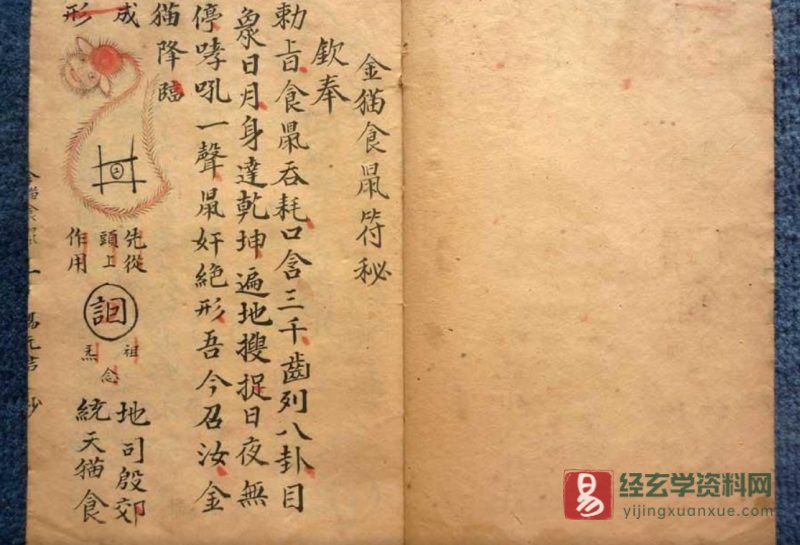 金猫食鼠符秘
欽奉
勅旨食鼠吞耗口含三千齒列八卦目
象日月身達乾坤遍地搜捉日夜無
停哮吼一聲鼠奸絶形吾今召汝金
猫降臨
成
形
先從
頭上
作用
祖
念
炁
地司殷郊
統天猫食
经玄学资料网
yijingxuanxue.com
易